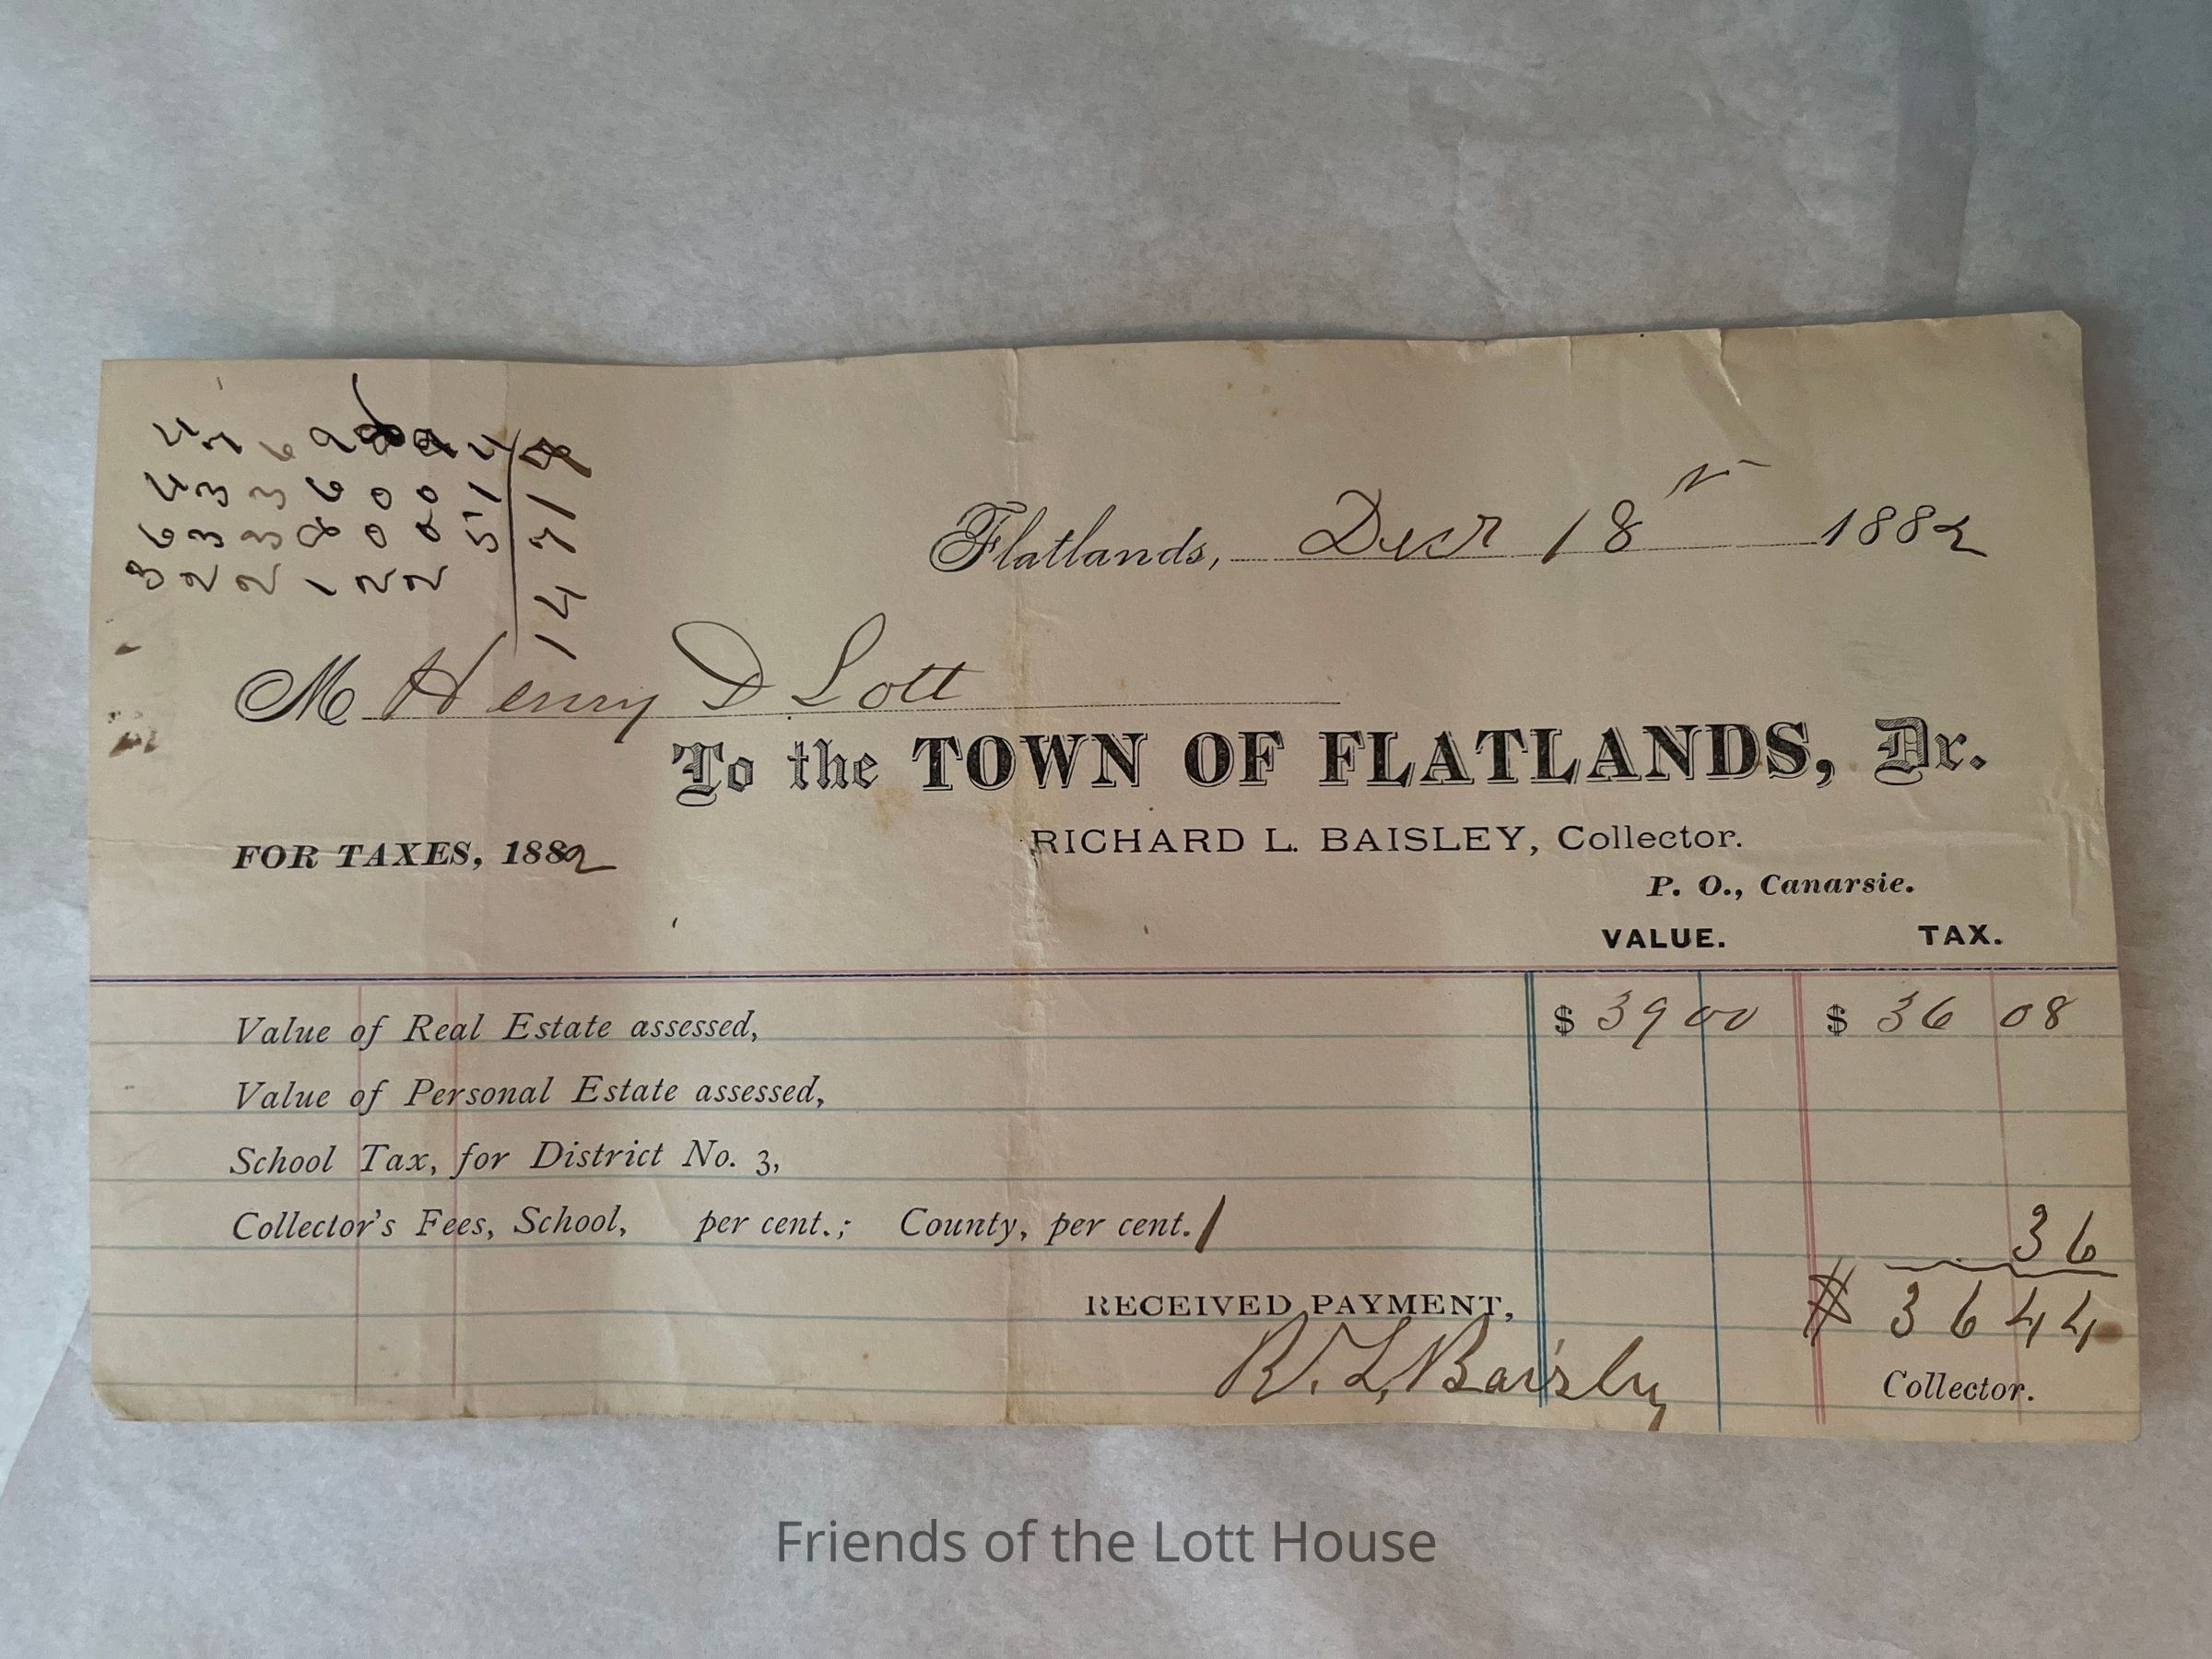 Flatlands, Decr 18 1882
M Henry D Lott
To the TOWN OF FLATLANDS, Dr.
FOR TAXES, 1882
RICHARD L. BAISLEY, Collector.
P. O., Canarsie.
VALUE. TAX.
Value of Real Estate assessed, $ 3900 $ 36 08
Value of Personal Estate assessed,
School Tax, for District No. 3,
Collector's Fees, School, per cent.; County, per cent. 1 36
RECEIVED PAYMENT, $ 36 44
R. L. Baisley Collector.
Friends of the Lott House